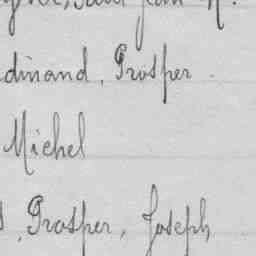 Jean
dinand, Prosper.
Michel
, Prosper, Joseph